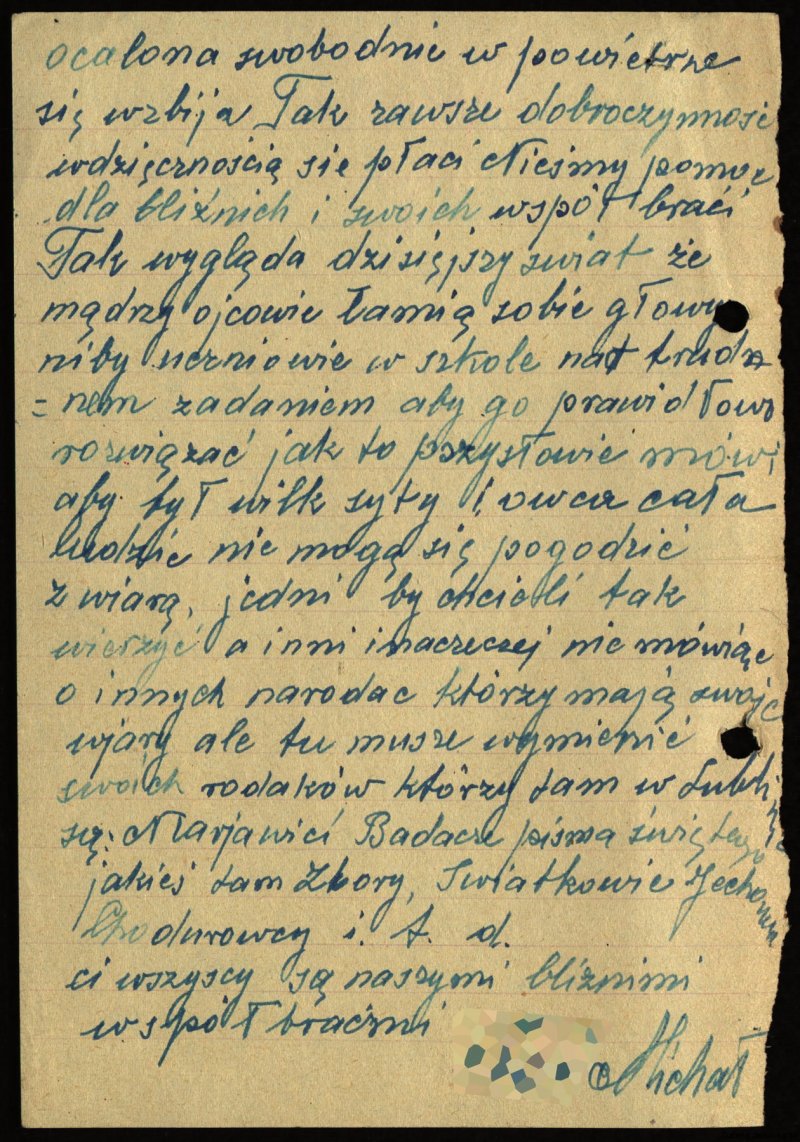 ocalona swobodnie w powietrze
się wzbija Tak zawsze dobroczynność
wdzięcznością się płaci Nieśmy pomoc
dla bliźnich i swoich współ braci
Tak wygląda dzisięjszy swiat że
mądrzy ojcowie łamią sobie głowy
niby uczniowie w szkole nat trud
= nem zadaniem aby go prawidłowo
rozwiązać jak to pszysłowie mówi
aby był wilk syty i owca cała
ludzie nie mogą się pogodzić
z wiarą, jedni by chcieli tak
wierzyć a inni inaczeczej nie mówiąc
o innych narodac którzy mają swoje
wjary ale tu musze wymienić
swoich rodaków którzy tam w Lublinie
są: Marjawici Badacze pisma świętego
jakieś tam Zbory, Swiatkowie Jechowy
Chodurowcy i. t. d.
ci wszyscy są naszymi bliznimi
współ braćmi
Michał